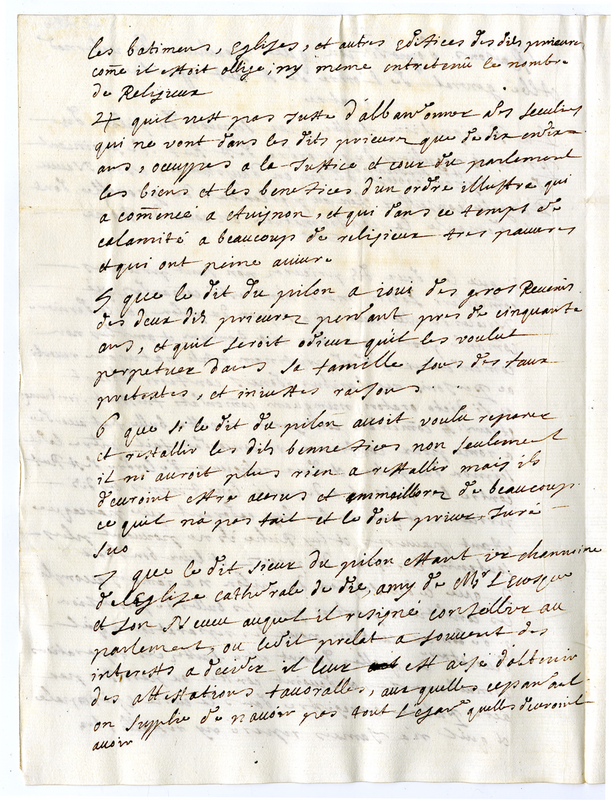 les batimens, Eglises, et autres Edifices des dits prieurez
come il estoit oblige, ny meme entretenu le nombre
de Religieux
4 quil nest pas Juste d'abbandonner a des seculiers
qui ne vont dans les dits prieurez que de dix en dix
ans, occuppes a la Justice et cour du parlement
les biens et les benefices d'un ordre illustre qui
a comence a Avignon, et qui dans ce temps de
calamité a beaucoup de religieux tres pauvres
et qui ont peine a vivre
5 que le dit du pilon a joui des gros Revenus
des deux dits prieurez pendant pres de cinquante
ans, et quil seroit odieux quil les voulut
perpetuer dans sa famille sous des faux
pretextes, et iniustes raisons
6 que si le dit du pilon avoit voulu reparer
et restablir les dits bennefices non seulement
il ni auroit plus rien a restablir mais ils
devroint estre accrus et ammeillorez de beaucoup
ce quil na pas fait et le doit priver Jure
suo
7 que le dit sieur du pilon estant channoine
de lEglise cathedrale de die, amy de Mr LEvesque
et son Neveu auquel il resigne conseillier au
parlement, ou ledit prelat a souvent des
interests a decider il leur est aise dobtenir
des attestations favorables, aux quelles cependant
on supplie de navoir pas tout LEgard quelles devroint
avoir